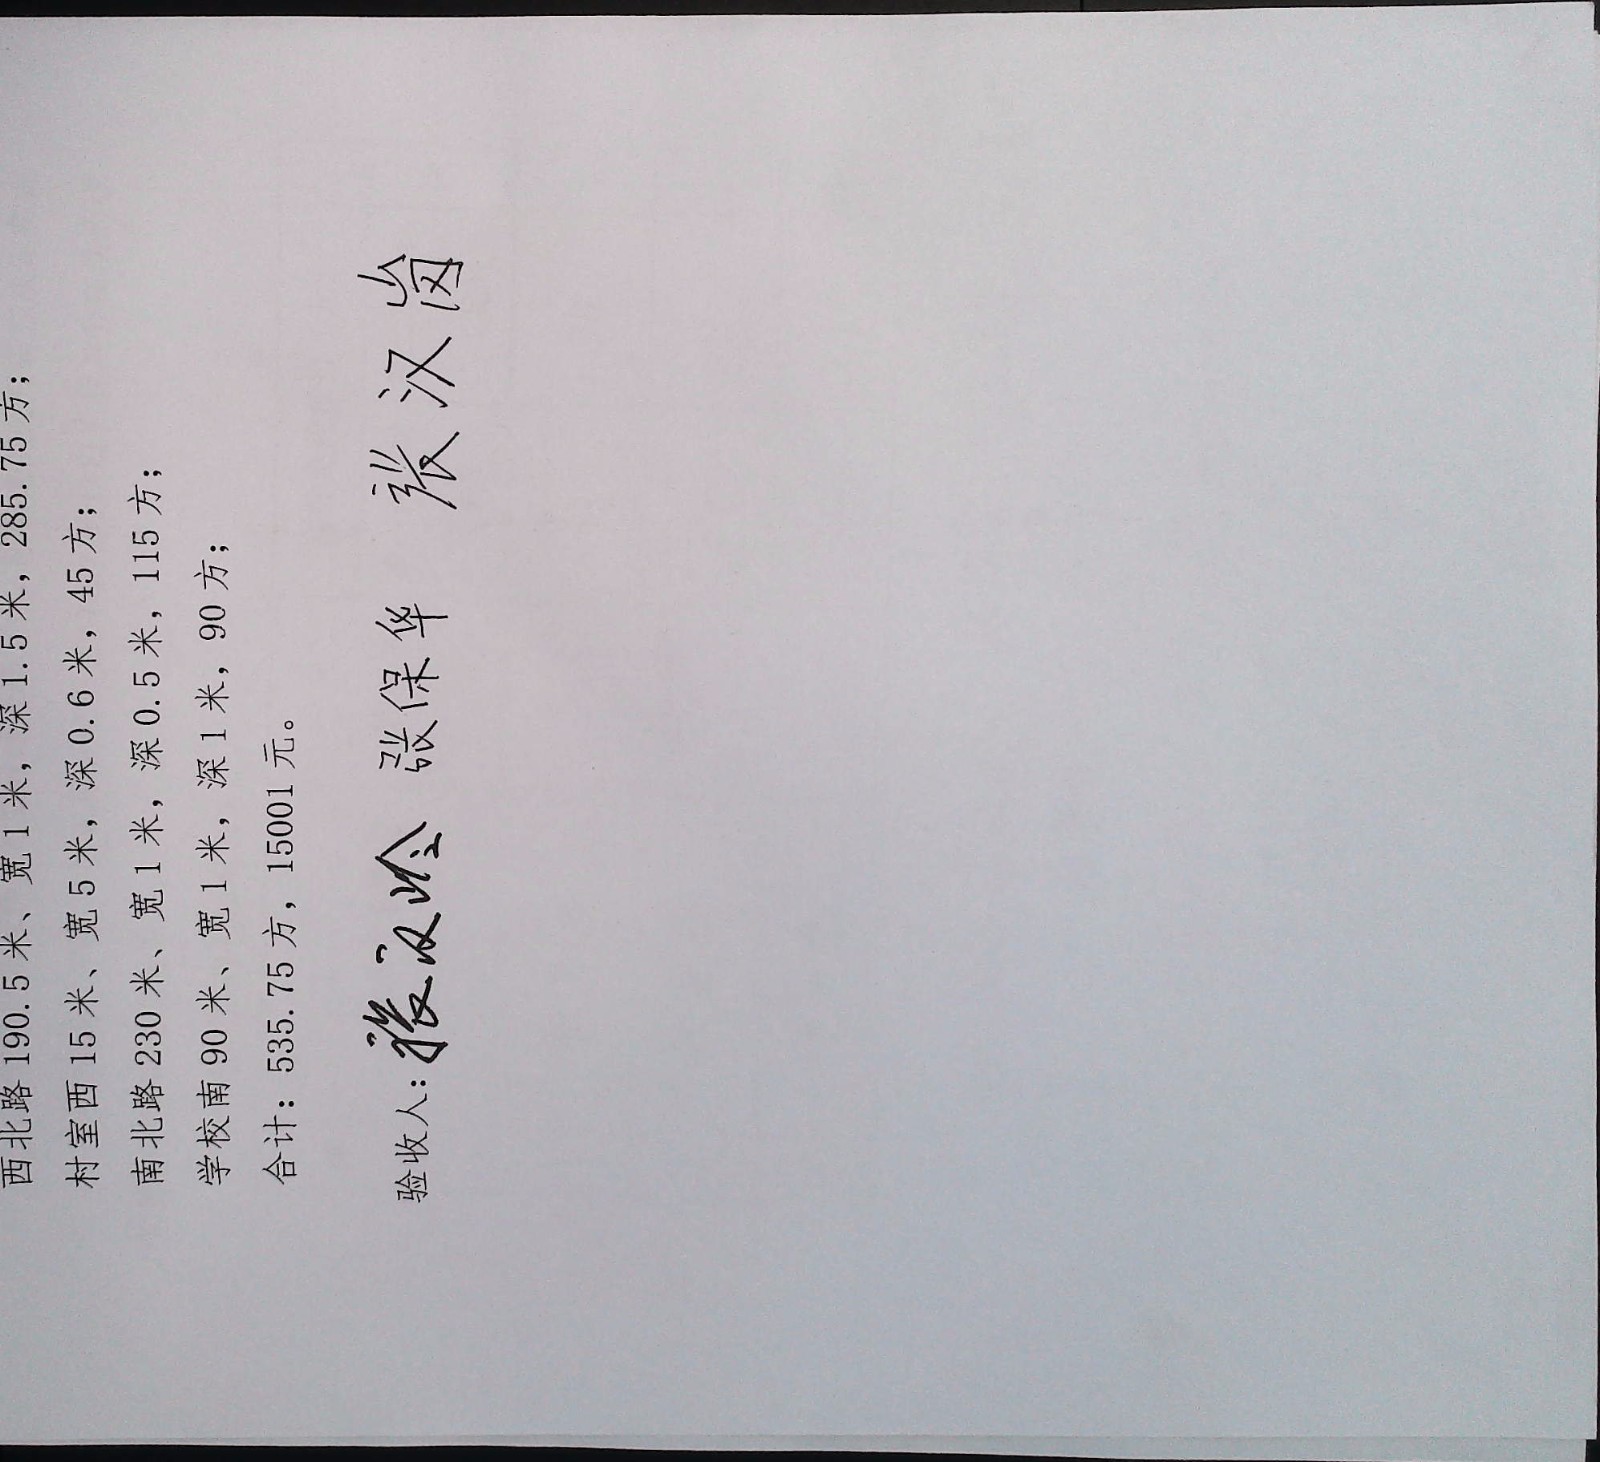 西北路 190.5 米、宽 1 米，深 1.5 米，285.75 方；
村室西 15 米、宽 5 米，深 0.6 米，45 方；
南北路 230 米、宽 1 米，深 0.5 米，115 方；
学校南 90 米、宽 1 米，深 1 米，90 方；
合计：535.75 方，15001 元。
验收人：张汉岭 张保华 张汉